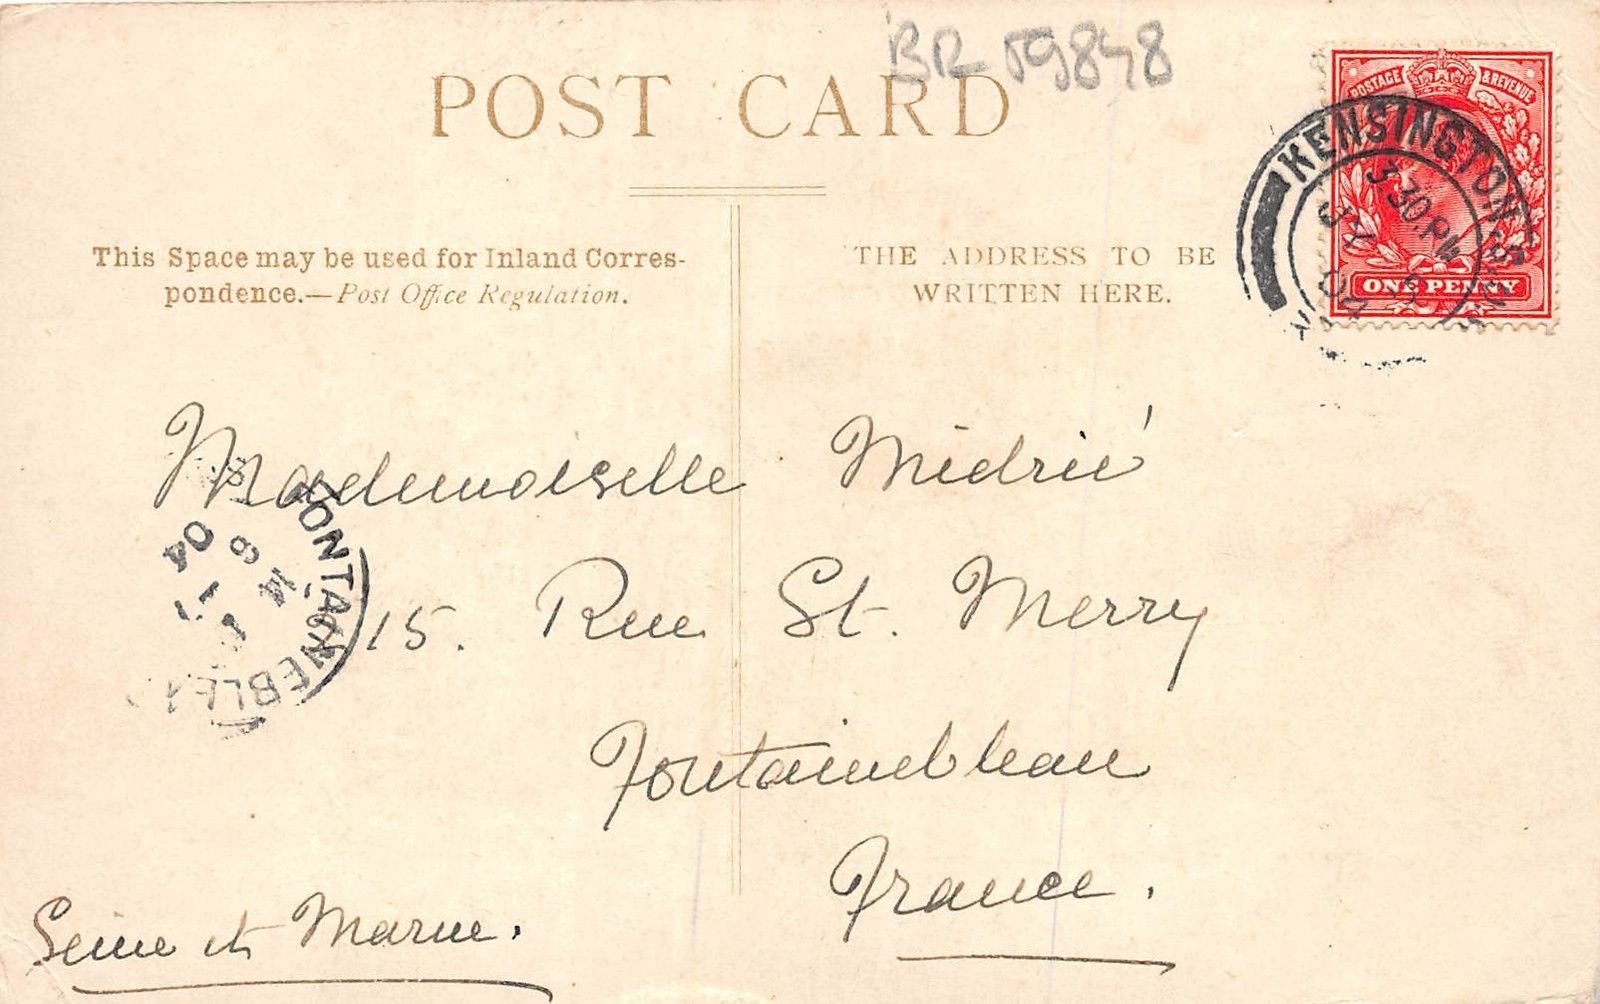 BR 59848
POST CARD
POSTAGE & REVENUE
ONE PENNY
KENSINGTON S.O.
3 30.PM
JY
04
This Space may be used for Inland Corres-
pondence.—Post Office Regulation.
THE ADDRESS TO BE
WRITTEN HERE.
Mademoiselle Médrié
15. Rue St. Merry
Fontainebleau
France.
Seine et Marne.
FONTAINEBLEA
04